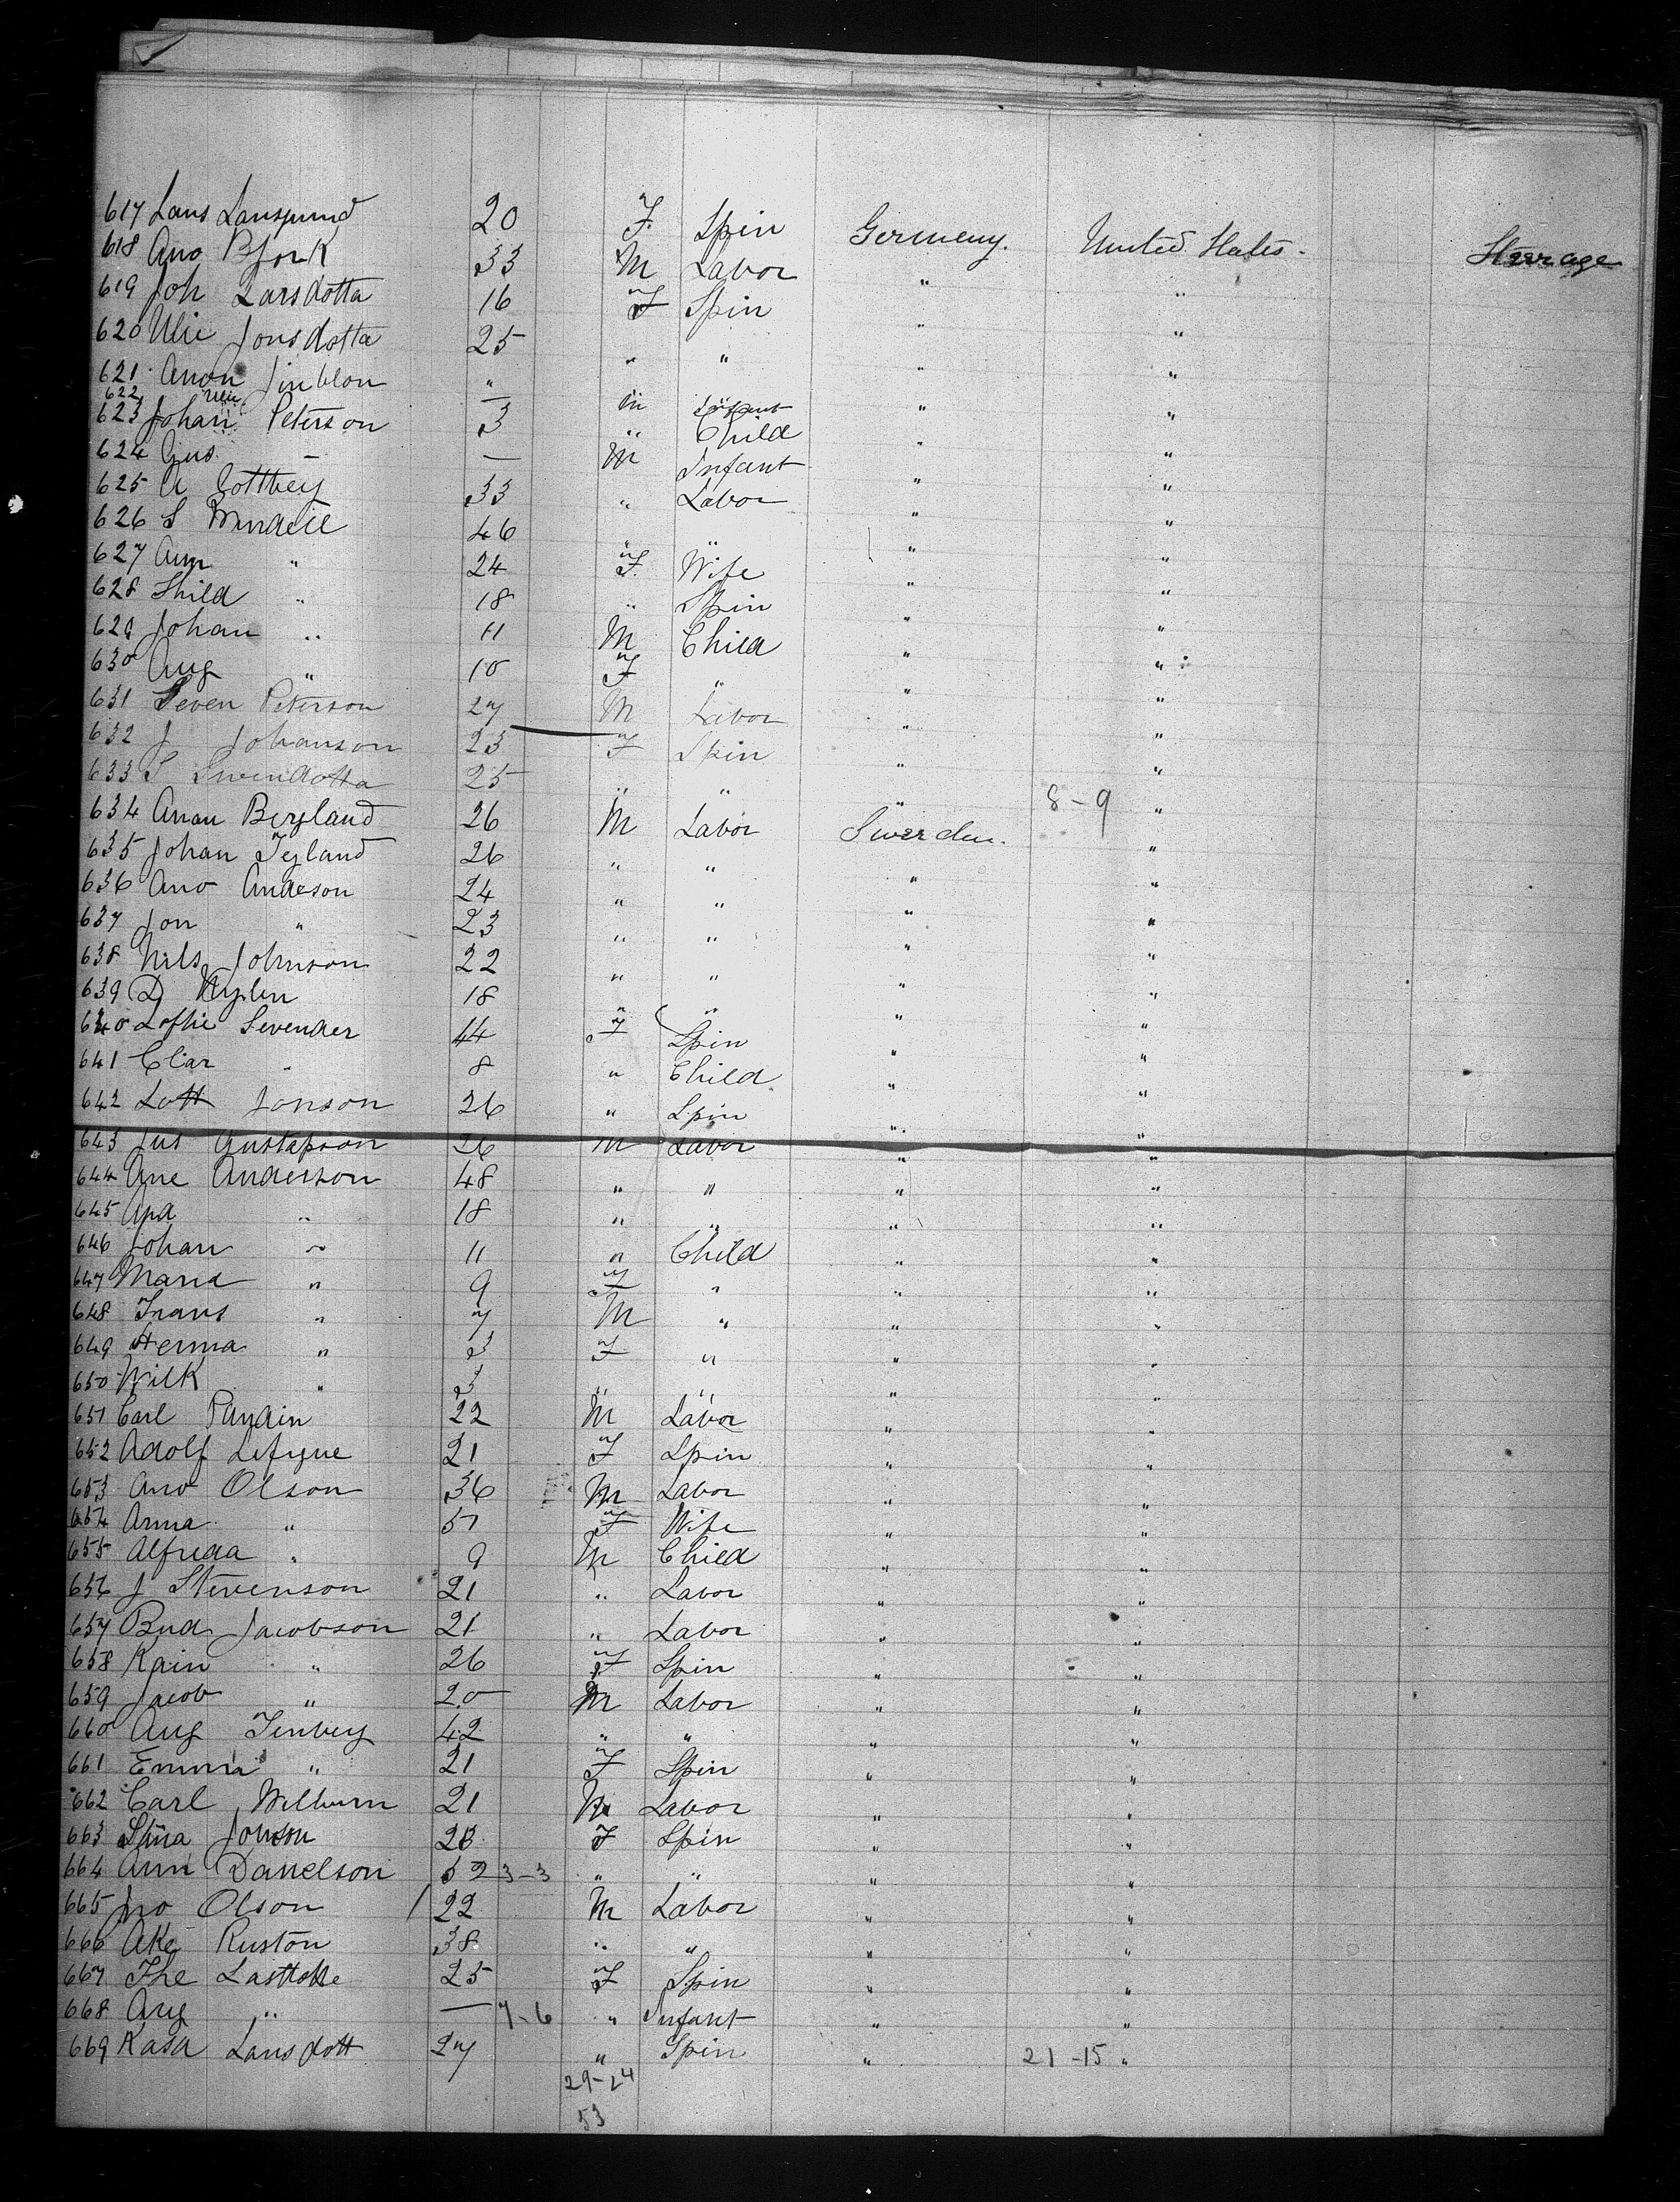 617 Lans Lansgund 20 F. Spin Germany. United States. Steerage
618 Ano Bjork 33 M Labor " "
619 Joh Larsdotta 16 F Spin " "
620 Ulii Jonsdotta 25 " " " "
621 Anon Jinblon " " "
622 Ulii — M Infant " "
623 Johan Peterson 3 " Child " "
624 Gus — — M Infant " "
625 A Gottbey 33 " Labor " "
626 S Mindell 46 " " " "
627 Ann " 24 F. Wife " "
628 Shild " 18 " Spin " "
629 Johan " 11 M Child " "
630 Aug " 10 F " " "
631 Seven Peterson 27 M Labor " "
632 J Johanson 23 F Spin " "
633 S Swendotta 25 " " " 8-9 "
634 Anau Bergland 26 M Labor Sweeden. "
635 Johan Tegland 26 " " " "
636 Ano Andeson 24 " " " "
637 Jon " 23 " " " "
638 Nils Johnson 22 " " " "
639 D Nylen 18 " " " "
640 Lofhie Sevender 44 F Spin " "
641 Clar " 8 " Child " "
642 Lott Jonson 26 " Spin " "
643 Jus Gustapson 26 M Labor " "
644 Ane Anderson 48 " " " "
645 And " 18 " " " "
646 Johan " 11 " Child " "
647 Maria " 9 F " " "
648 Frans " 7 M " " "
649 Herma " 3 F " " "
650 Wilk " 3 " " " "
651 Carl Pandin 22 M Labor " "
652 Adolf Lefgue 21 F Spin " "
653 Ano Olson 36 M Labor " "
654 Anna " 51 F Wife " "
655 Alfreda " 9 M Child " "
656 J Stevenson 21 " Labor " "
657 Bud Jacobson 21 " Labor " "
658 Kain " 26 F Spin " "
659 Jacob " 20 M Labor " "
660 Aug Tenbey 42 " " " "
661 Emma " 21 F Spin " "
662 Carl Welburn 21 M Labor " "
663 Stina Jonson 23 F Spin " "
664 Ann Danelson 52 3-3 " " " "
665 Jno Olson 22 M Labor " "
666 Ake Ruston 38 " " " "
667 The Lasttotte 25 F Spin " "
668 Aug " — 7-6 " Infant " "
669 Kasa Lansdott 27 " Spin " 21-15 "
29-24
53